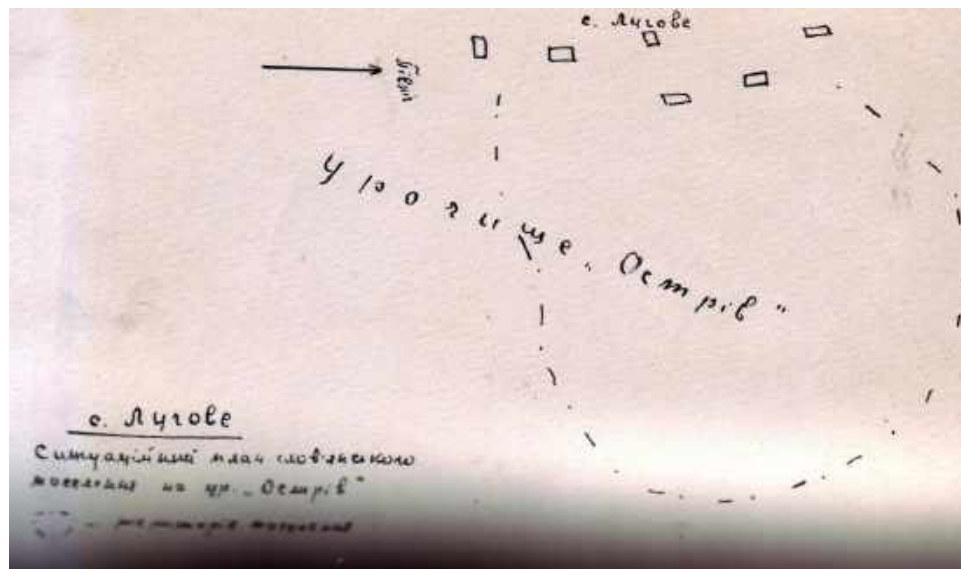 с. Лугове
Північ
Урочище „Острів“
с. Лугове
Ситуаційний план слов'янського
поселення на ур. „Острів“
- територія поселення